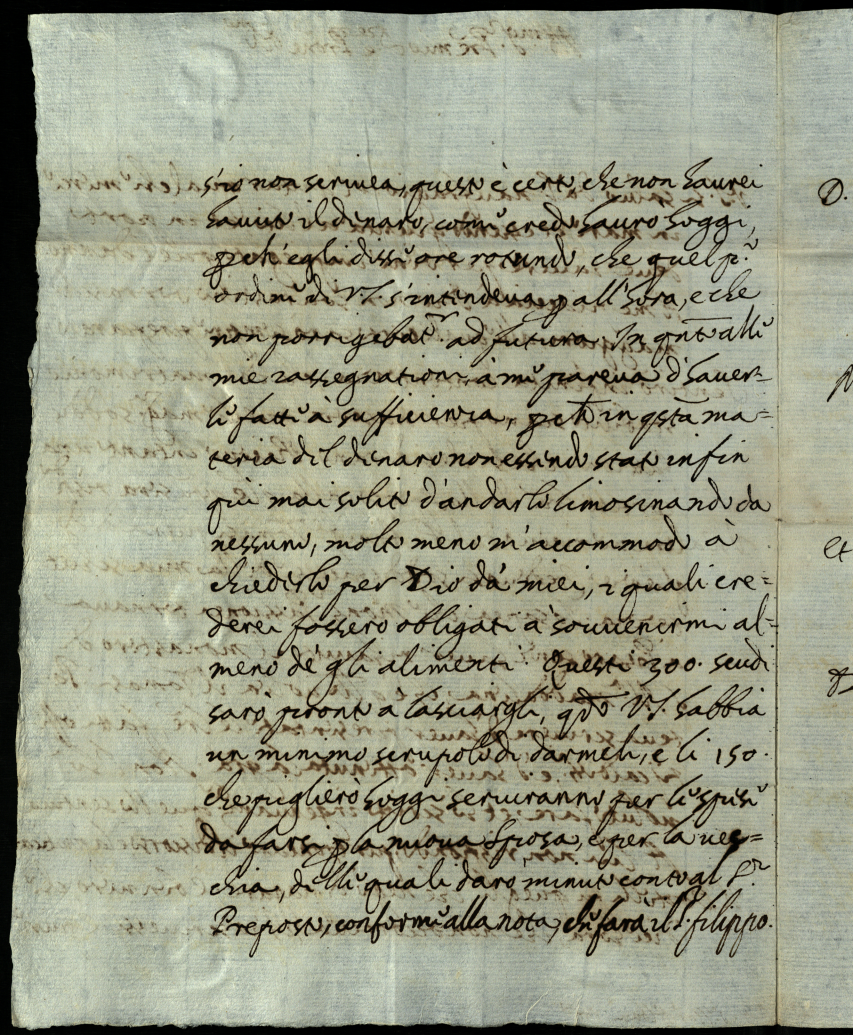 s'io non scrivea, questo è certo, che non haurei
havuto il denaro, come credo hauro hoggi,
perch'egli disse ore rotundo, che quel p.º
ordine di V.S. s'intendeva p all'hora, e che
non porrigebat.r ad futura. In qnto alle
mie rassegnationi, à me pareva d'haver-
le fatte à sufficienza, perche in qsta ma=
teria del denaro non essendo stato infin
qui mai solito d'andarlo limosinando da
nessuno, molto meno m'accommodo à
chiederlo per Dio da' miei, i quali cre=
derei fossero obligati à souuenirmi al=
meno de gli alimenti. Questi 300. scudi
sarò pronto a lasciargli, qdo V.S. habbia
un minimo scrupolo di darmeli, e li 150.
che piglierò hoggi serviranno per le spese
da farsi p la nuova Sposa, e per la vec=
chia, delle quali darò minuto conto al S.r
Preposto, conforme alla nota, che fara il S.r filippo.
D.
et